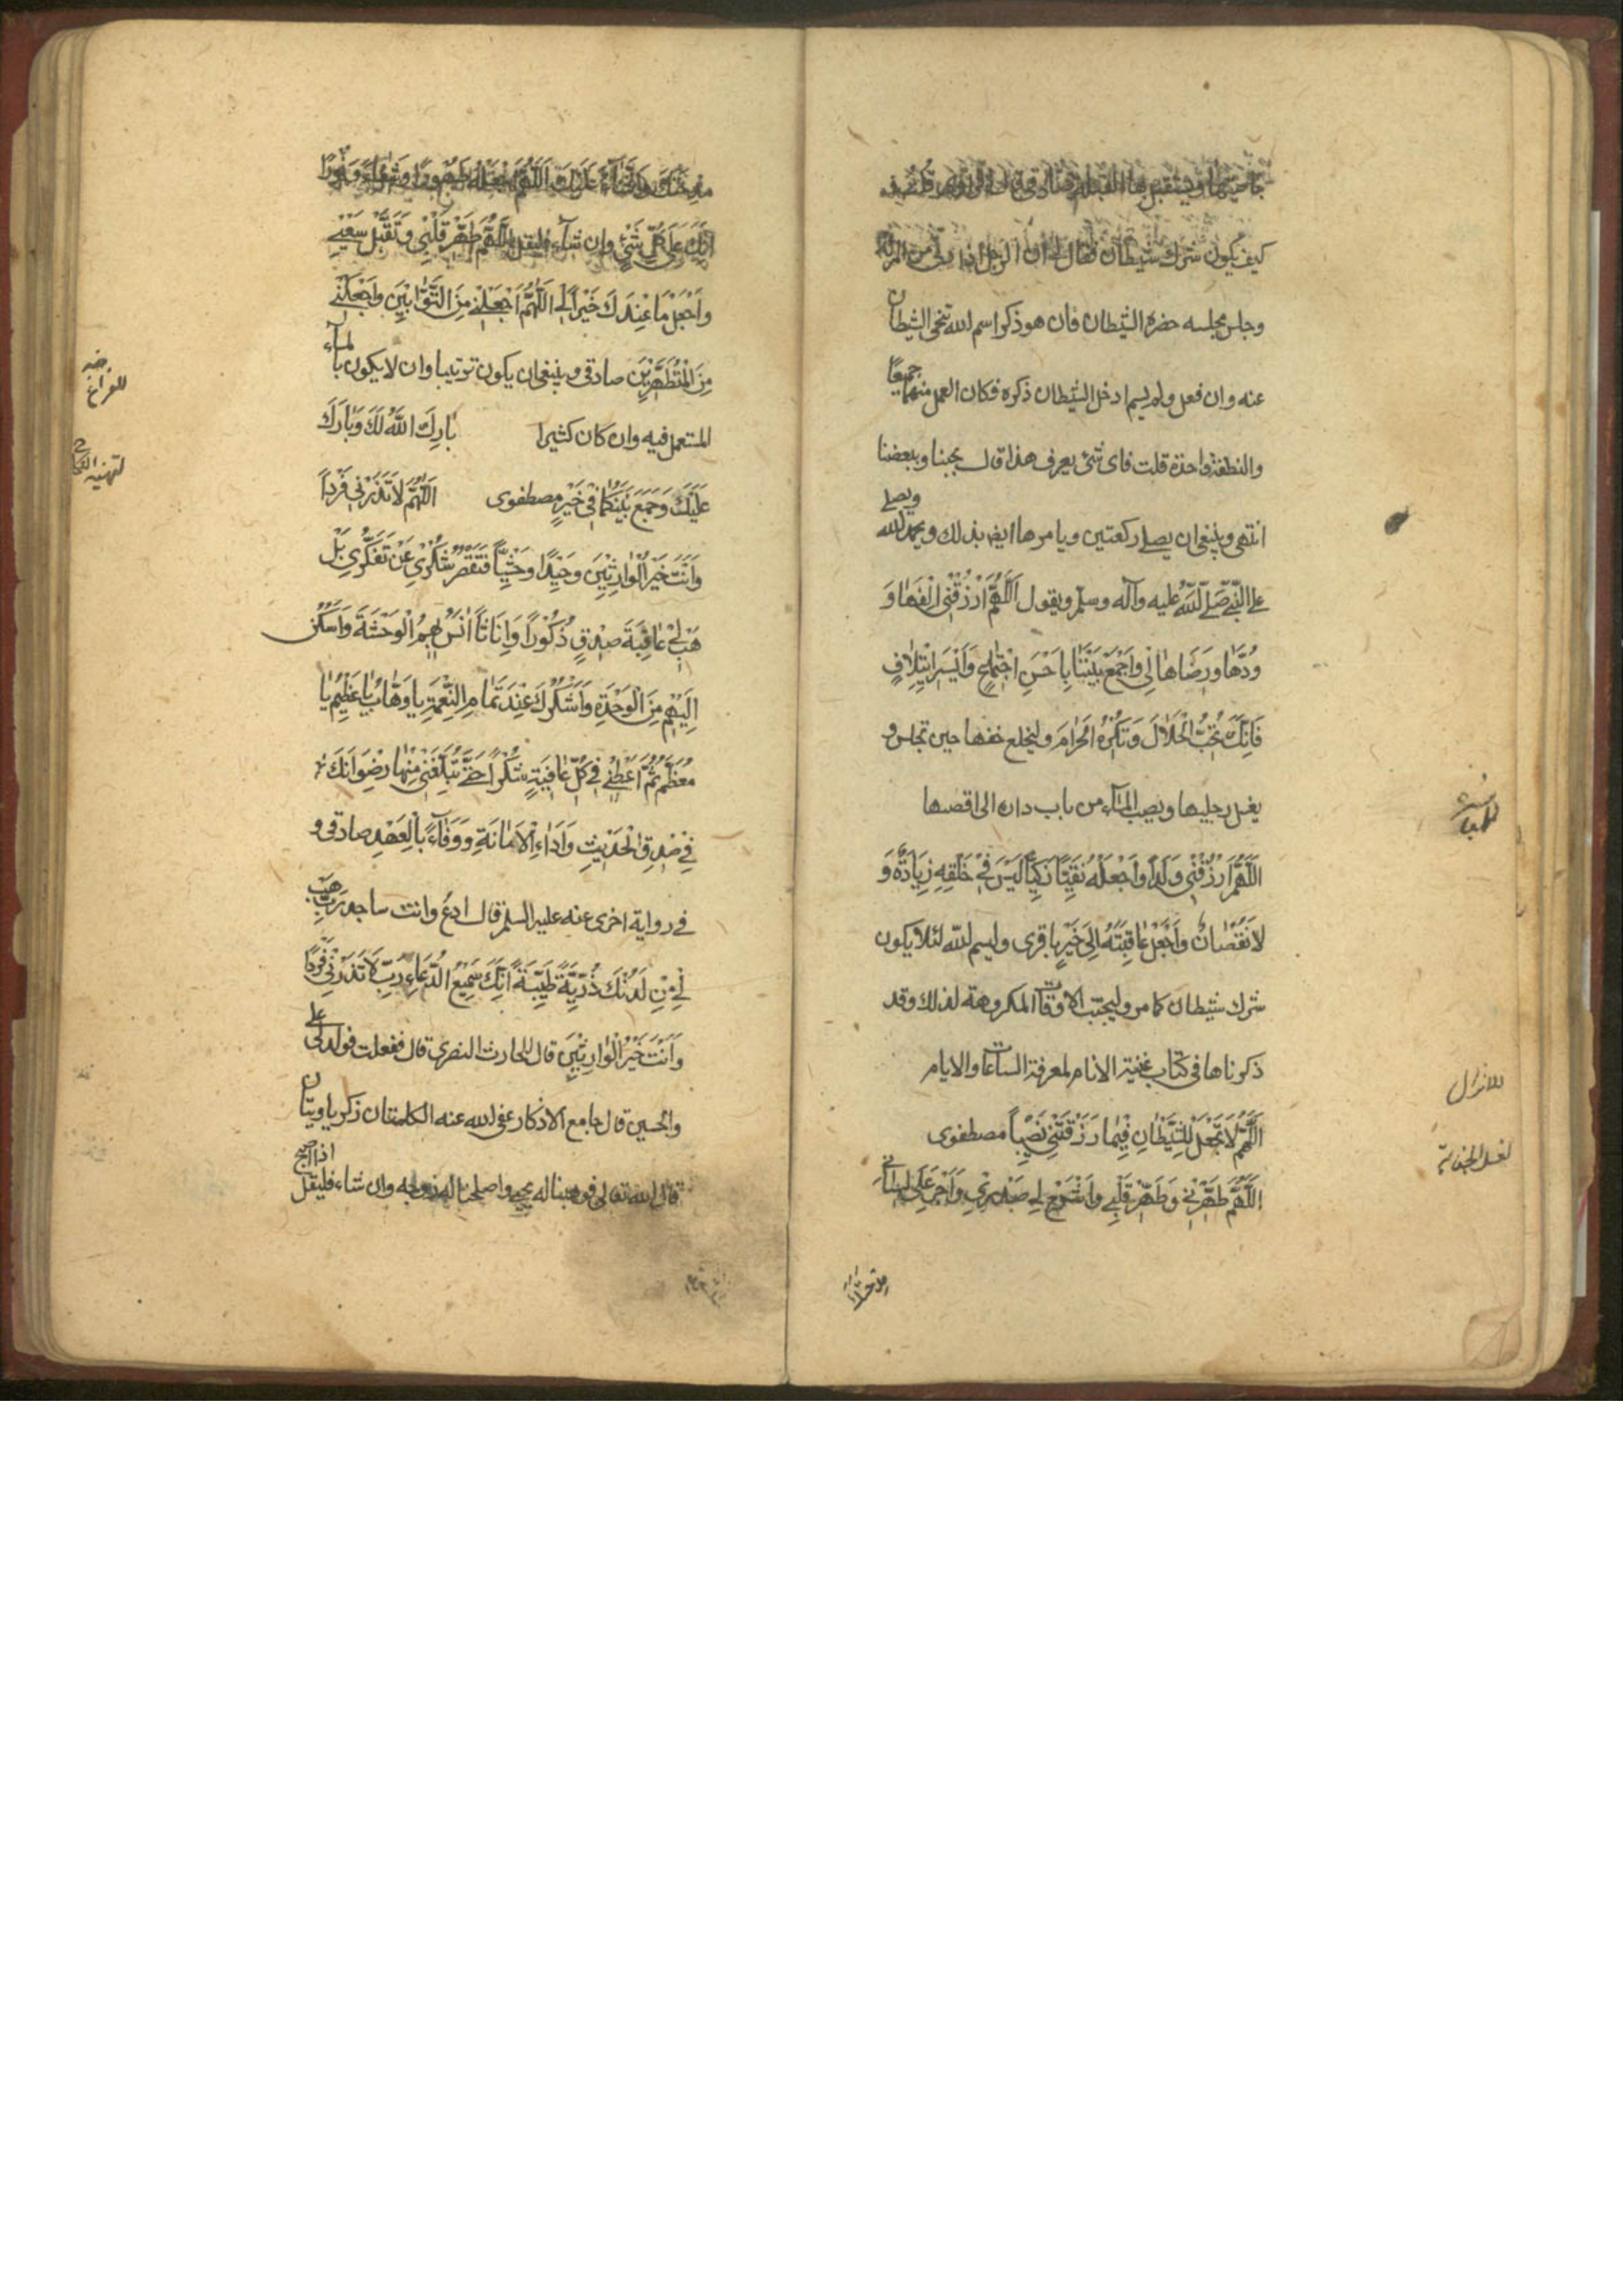 كيف يكون شرك شيطان فقال لي ان الرجل اذا دنى من المراة
وجلس مجلسه حضره الشيطان فان هو ذكر اسم الله تنحى الشيطان
عنه وان فعل ولم يسم ادخل الشيطان ذكره فكان العمل منهما جميعًا
والنطفة واحدة قلت فاى شئ يعرف هذا قال بحبنا وببغضنا
انتهى وينبغى ان يصلى ركعتين ويامرها ايضا بذلك ويحمد الله ويصلى
على النبى صَلَّى اللَّهُ عليه وآله وسلم ويقول اَللَّهُمَّ ارْزُقْنِى اِلْفَهَا وَ
وُدَّهَا وَرِضَاهَا بِى وَاجْمَعْ بَيْنَنَا بِاَحْسَنِ اجْتِمَاعٍ وَاَيْسَرِ ائْتِلَافٍ
فَاِنَّكَ تُحِبُّ الْحَلَالَ وَتَكْرَهُ الْحَرَامَ وليخلع خفها حين تجلس و
يغسل رجليها ويصب الماء من باب داره الى اقصىها
للمباشرة
اَللَّهُمَّ ارْزُقْنِى وَلَدًا وَاجْعَلْهُ تَقِيًّا زَكِيًّا لَيْسَ فِى خَلْقِهِ زِيَادَةٌ وَ
لَا نُقْصَانٌ وَاجْعَلْ عَاقِبَتَهُ اِلَى خَيْرٍ باقرى وليسم الله لئلا يكون
شرك شيطان كما مر وليجتنب الاوقات المكروهة لذلك وقد
ذكرناها فى كتاب غنية الانام لمعرفة الساعات والايام
للانزال
اَللَّهُمَّ لَا تَجْعَلْ لِلشَّيْطَانِ فِيمَا رَزَقْتَنِى نَصِيبًا مصطفوى
لغسل الجنابة
اَللَّهُمَّ طَهِّرْنِى وَطَهِّرْ قَلْبِى وَاشْرَحْ لِى صَدْرِى وَاَجْرِ عَلَى لِسَانِى
مدحتك
مدحتك والثَّنَاءَ عَلَيْكَ اَللَّهُمَّ اجْعَلْهُ لِى طَهُورًا وَشِفَاءً وَنُورًا
اِنَّكَ عَلَى كُلِّ شَئٍ وان شاء فليقل اَللَّهُمَّ طَهِّرْ قَلْبِى وَتَقَبَّلْ سَعْيِى
وَاجْعَلْ مَا عِنْدَكَ خَيْرًا لِى اَللَّهُمَّ اجْعَلْنِى مِنَ التَّوَّابِينَ وَاجْعَلْنِى
مِنَ الْمُتَطَهِّرِينَ صادقى وينبغى ان يكون ترتيبا وان لا يكون بالماء
المستعمل فيه وان كان كثيرا بَارَكَ اللَّهُ لَكَ وَبَارَكَ
لتهنية النكاح
عَلَيْكَ وَجَمَعَ بَيْنَكُمَا فِى خَيْرٍ مصطفوى اَللَّهُمَّ لَا تَذَرْنِى فَرْدًا
وَاَنْتَ خَيْرُ الْوَارِثِينَ وَحِيدًا وَحْشِيًّا فَيَقْصُرَ شُكْرِى عَنْ تَفَكُّرِى بَلْ
هَبْ لِى عَاقِبَةَ صِدْقٍ ذُكُورًا وَاِنَاثًا اٰنَسُ بِهِمُ الْوَحْشَةَ وَاَسْكُنُ
اِلَيْهِمْ مِنَ الْوَحْدَةِ وَاَشْكُرُكَ عِنْدَ تَمَامِ النِّعْمَةِ يَا وَهَّابُ يَا عَظِيمُ يَا
مُعَظَّمُ ثُمَّ اَعْطِنِى فِى كُلِّ عَافِيَةٍ شُكْرًا حَتَّى تُبَلِّغَنِى مِنْهَا رِضْوَانَكَ
فِى صِدْقِ الْحَدِيثِ وَاَدَاءِ الْاَمَانَةِ وَوَفَاءً بِالْعَهْدِ صادقى و
فى رواية اخرى عنه عليه السلم قال ادع وانت ساجد رَبِّ هَبْ
لِى مِنْ لَدُنْكَ ذُرِّيَّةً طَيِّبَةً اِنَّكَ سَمِيعُ الدُّعَاءِ رَبِّ لَا تَذَرْنِى فَرْدًا
وَاَنْتَ خَيْرُ الْوَارِثِينَ قال الحارث النصرى قال ففعلت فولد لى على
والحسين قال جامع الاذكار عفى الله عنه الكلمتان زكرياويتان
قال الله تعالى فوهبنا له يحيى واصلحنا له زوجه وان شاء فليقل اذا اصبح